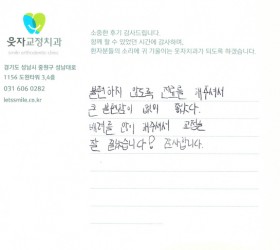 소중한 후기 감사드립니다.
함께 할 수 있었던 시간에 감사하며,
환자분들의 소리에 귀 기울이는 웃자치과가 되도록 하겠습니다.
웃자교정치과
경기도 성남시 중원구 성남대로
1156 도원타워 3,4층
031 606 0282
letssmile.co.kr
불편하지 않도록 진료를 해주셔서
큰 불편감이 없이 았다.
배려를 많이 해주셔서 교정을
잘 했습니다! 감사합니다.